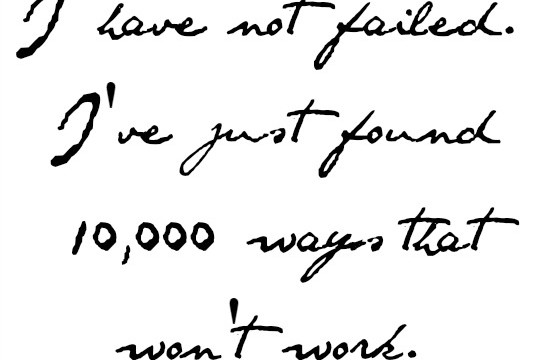 I have not failed.
I've just found
10,000 ways that
won't work.